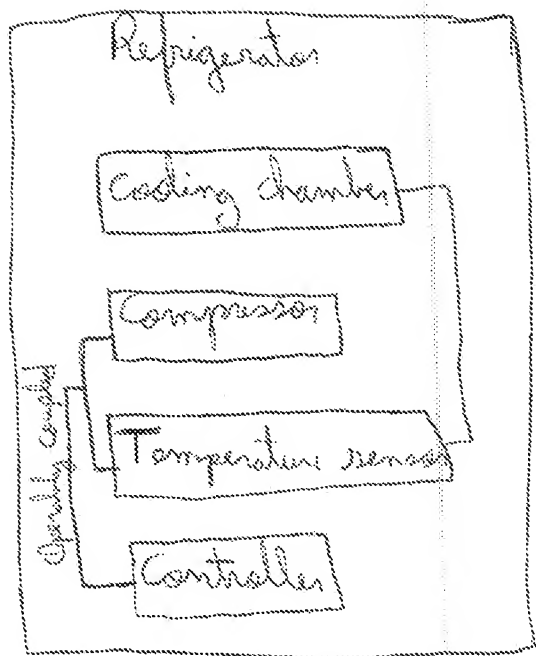 Refrigerator
Cooling chamber
Compressor
Temperature sensor
Controller
Operably coupled